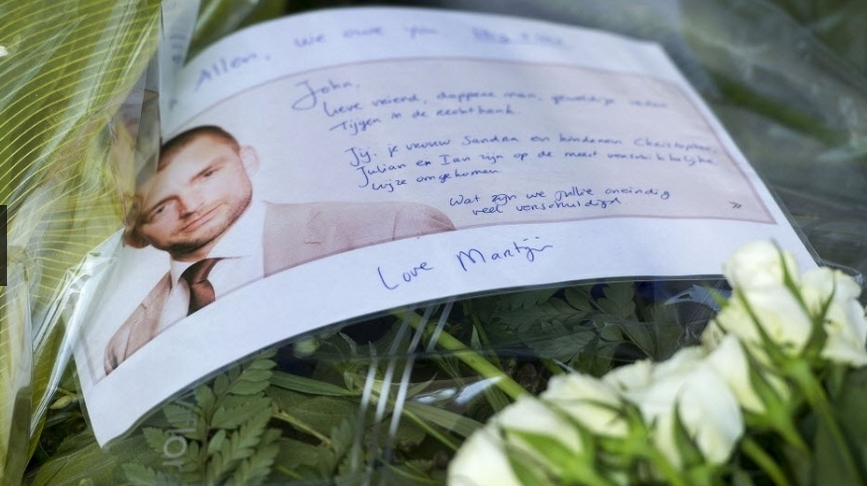 Allen, we owe you
John,
Lieve vriend, dappere man, geweldige vader
Tijgen in de rechtbank.
Jij, je vrouw Sandra en kinderen Christopher,
Julian en Ian zijn op de meest verschrikkelijke
wijze omgekomen
Wat zijn we jullie oneindig
veel verschuldigd
»
Love Martijn